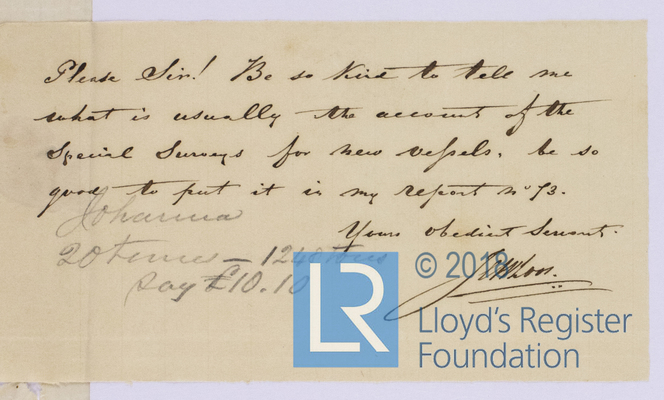 Please Sir! Be so kind to tell me
what is usually the account of the
Special Surveys for new vessels. be so
good to put it in my report no 73.
Yours obedient Servant.
Johanna
20 – 1240 tons
say £10.10
© 2018
LR
Lloyd's Register
Foundation